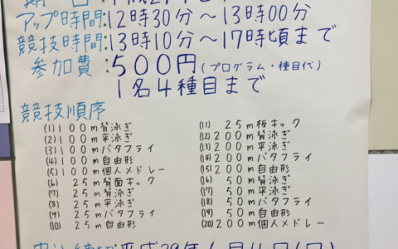 アップ時間:12時30分～13時00分
競技時間:13時10分～17時頃まで
参加費:500円(プログラム・種目代)
1名4種目まで
競技順序
(1)100m背泳ぎ
(2)100m平泳ぎ
(3)100mバタフライ
(4)100m自由形
(5)100m個人メドレー
(6) 25m背面キック
(7) 25m背泳ぎ
(8) 25m平泳ぎ
(9) 25mバタフライ
(10) 25m自由形
(11) 25m板キック
(12)200m背泳ぎ
(13)200m平泳ぎ
(14)200mバタフライ
(15)200m自由形
(16) 50m背泳ぎ
(17) 50m平泳ぎ
(18) 50mバタフライ
(19) 50m自由形
(20)200m個人メドレー
平成29年